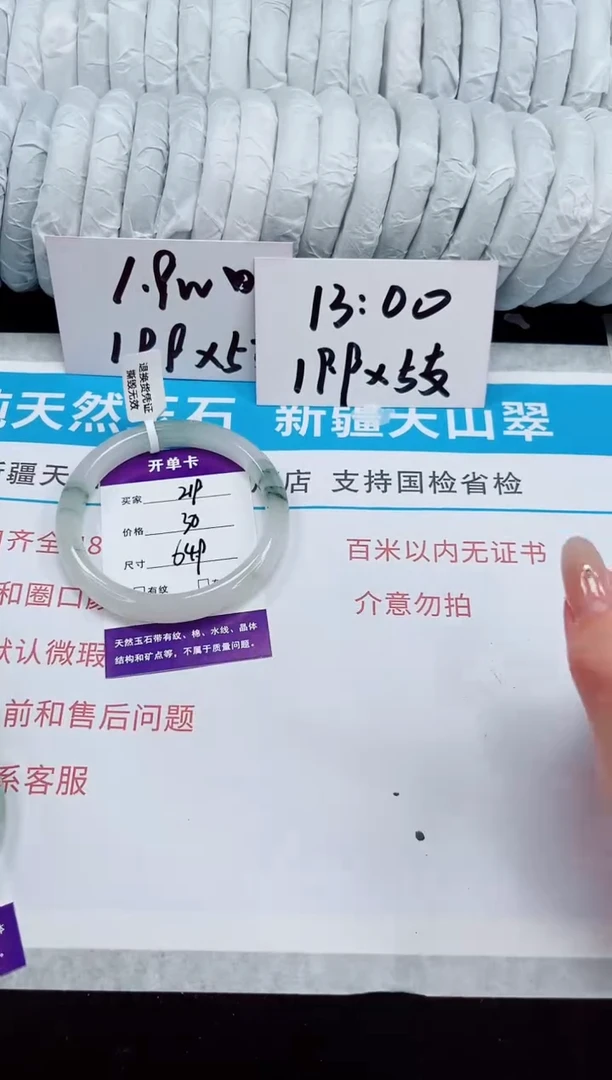 1.9w
1PP x5
13:00
1PP x5支
退换货凭证
撕毁无效
纯天然玉石 新疆天山翠
新疆天
店 支持国检省检
开单卡
买家
价格 30
尺寸
有纹
天然玉石带有纹、棉、水线、晶体
结构和矿点等，不属于质量问题。
齐全 18
和圈口
默认微瑕
前和售后问题
系客服
百米以内无证书
介意勿拍